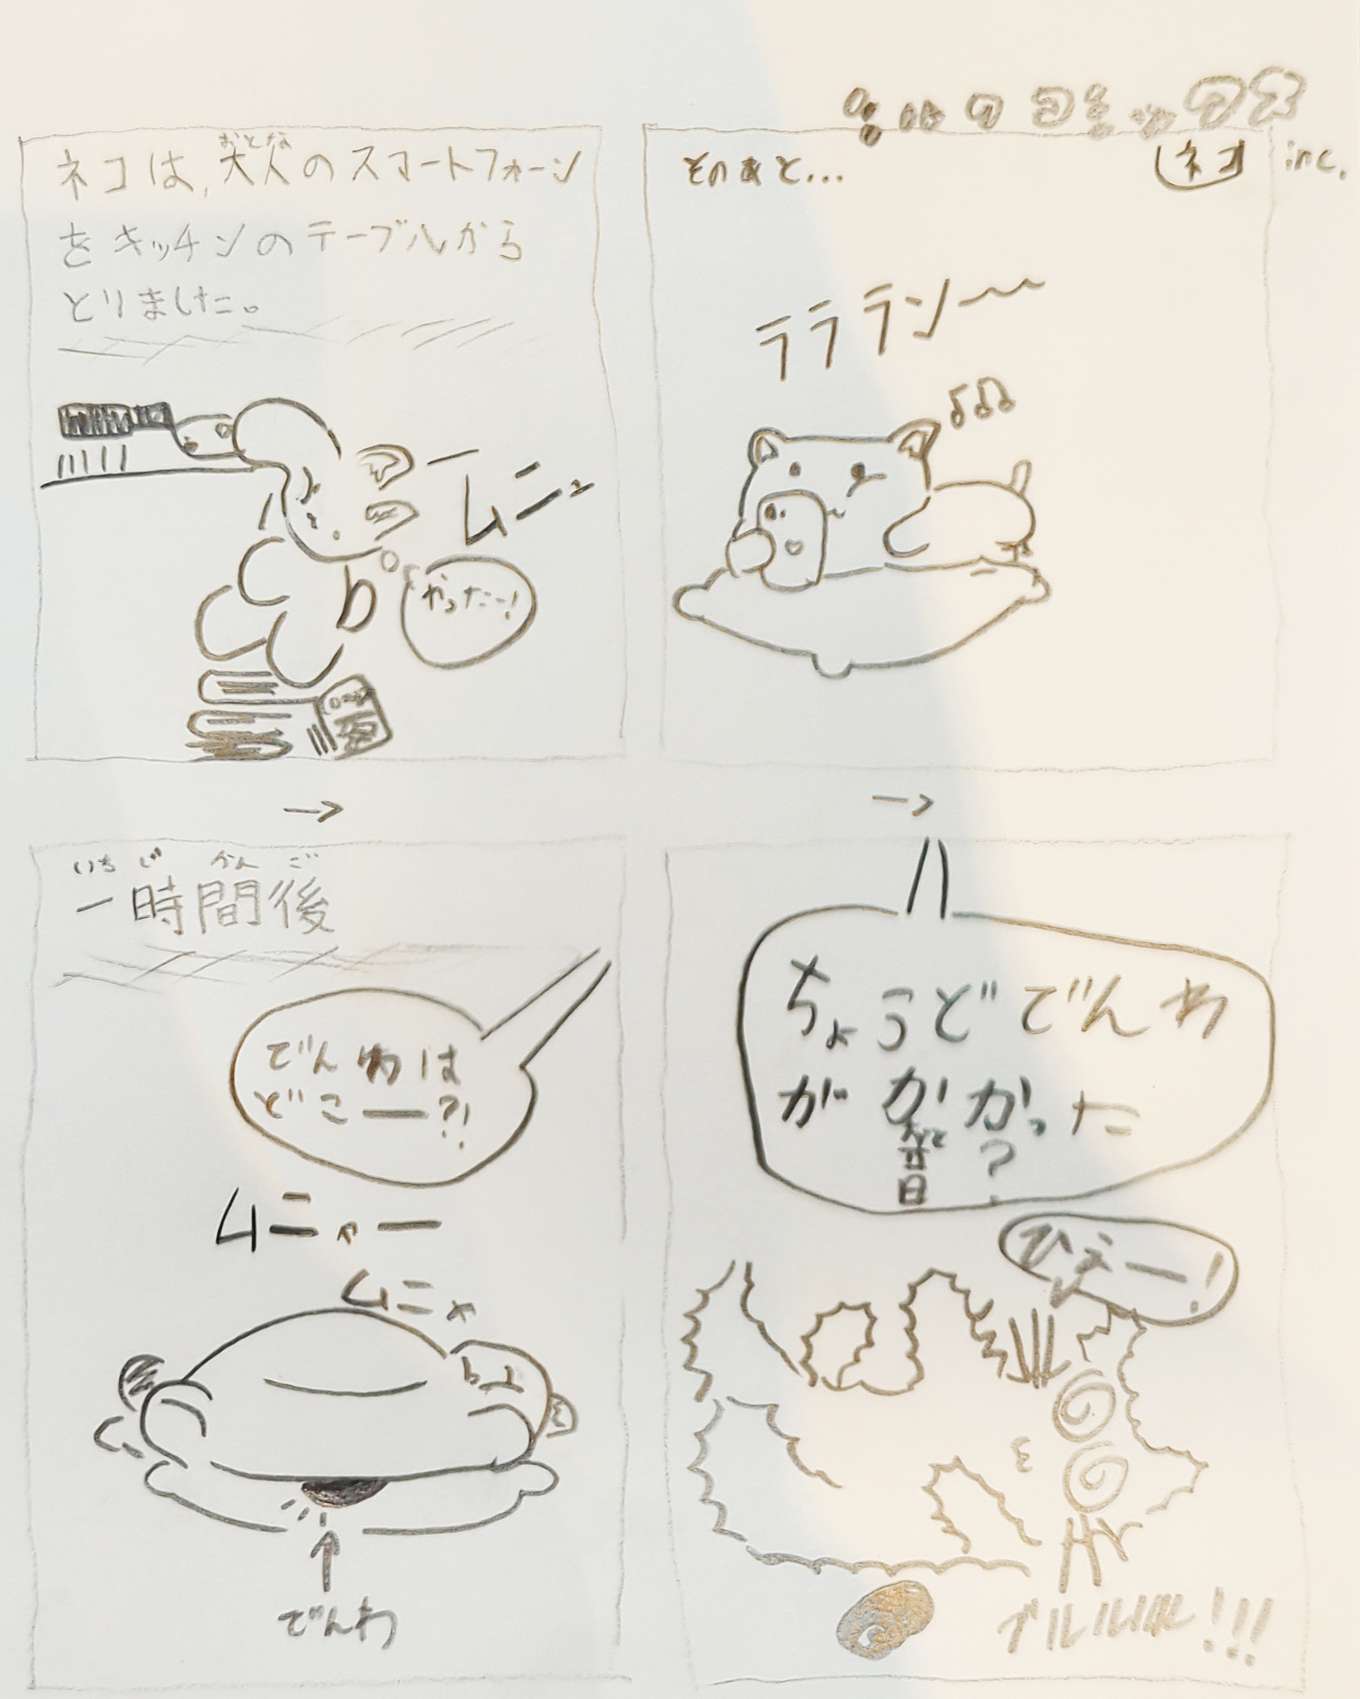 ネコは、大人のスマートフォーン
おとな
をキッチンのテーブルから
とりました。
ムニュ
やったー!
そのあと...
ネコ inc.
ラララン〜
一時間後
いちじかんご
でんわは
どこー?!
ムニャー
ムニャ
でんわ
ちょうどでんわ
がかかった
音?
おと
ひえー!
ブルルルル!!!